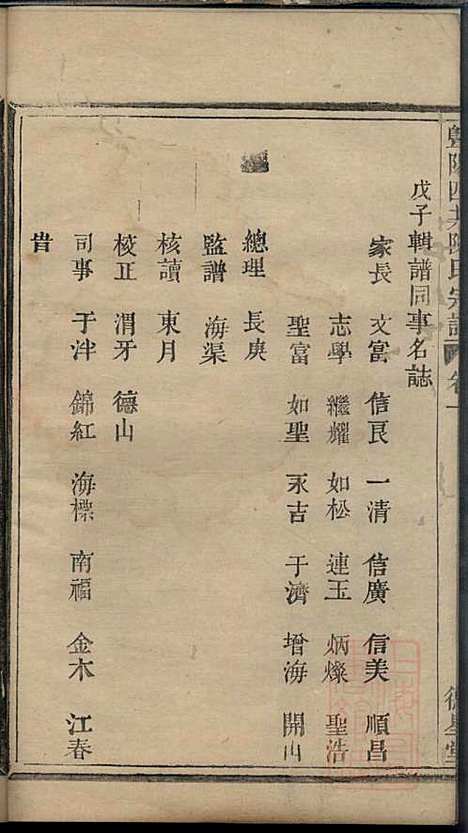 暨陽
陳氏宗譜 卷一
星堂
戊子輯譜同事名誌
家長 文富 信民 一清 信廣 信美 順昌
志學 繼耀 如松 連玉 炳燦 聖浩
聖富 如聖 永吉 于濟 增海 開山
總理 長庚
監譜 海渠
核讀 東月
校正 渭牙 德山
司事 于泮 錦紅 海標 南福 金木 江春
旹